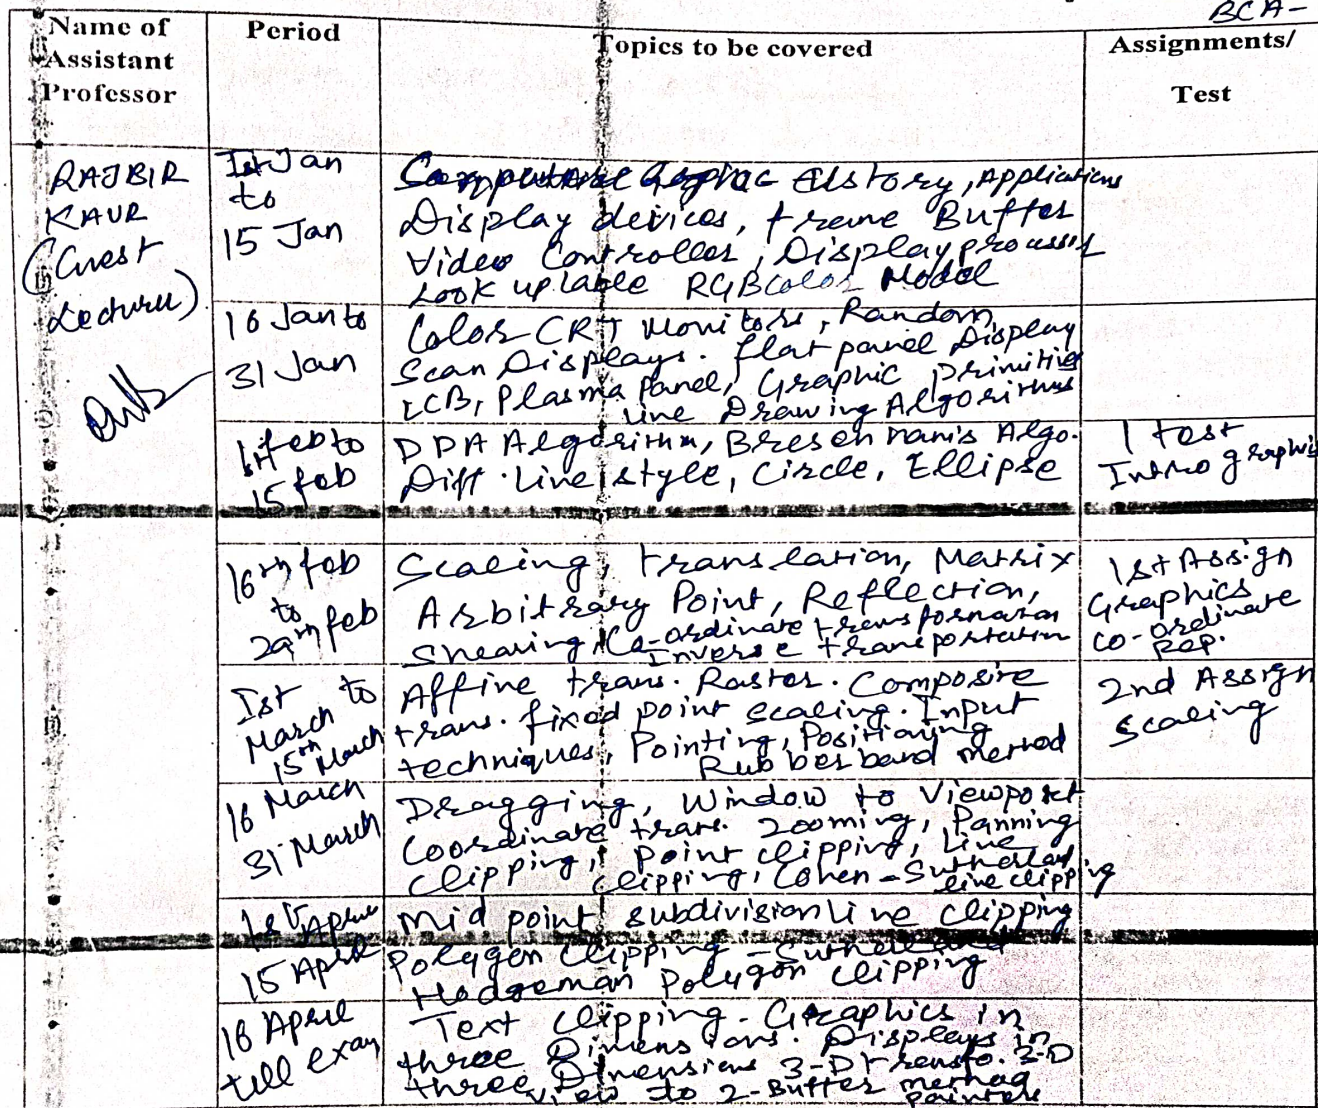 BCA-
Name of Assistant Professor
Period
Topics to be covered
Assignments/ Test
RAJBIR
KAUR
(Guest
Lecturer)
Ist Jan
to
15 Jan
History, Applications
Display devices, frame Buffer
Video Controller, Display processor
Look up table RGB Color Model
16 Jan to
31 Jan
Color CRT Monitors, Random
Scan Displays. flat panel Display
LCD, Plasma Panel, Graphic primities
Line Drawing Algorithms
1st feb to
15 feb
DDA Algorithm, Bresenham's Algo.
Diff. Line style, Circle, Ellipse
1 test
Intro graphic
16th feb
to
29th feb
Scaling, translation, Matrix
Arbitrary Point, Reflection,
Shearing, Co-ordinate transformation
Inverse transportation
1st Assign
Graphics
co-ordinate
Rep.
Ist to
March
15th March
Affine trans. Raster. Composite
trans. fixed point scaling. Input
techniques, Pointing, Positioning
Rubber band method
2nd Assign
scaling
16 March
31 March
Dragging, Window to Viewport
Coordinate trans. Zooming, Panning
Clipping, Point clipping, Line
clipping, Cohen-Sutherland
line clipping
1st April
15 April
Mid point subdivision line clipping
Polygon Clipping - Sutherland
Hodgeman Polygon clipping
16 April
till exam
Text clipping. Graphics in
three Dimensions. Displays in
three Dimensions 3-D transfo. 3-D
view to Z-Buffer method
painters